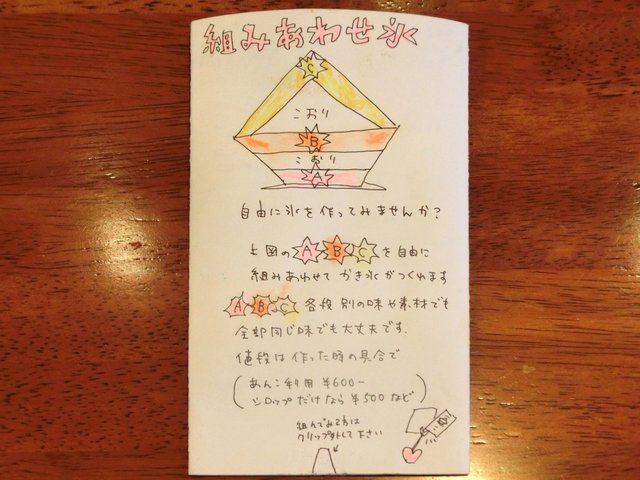 組みあわせ氷
C
こおり
B
こおり
A
自由に氷を作ってみませんか?
上図の A B C を自由に
組みあわせて かき氷がつくれます
A・B・C 各段 別の味や素材でも
全部同じ味でも大丈夫です.
値段は 作った時の具合で
(あんこ利用 ¥600-
シロップだけなら ¥500 など)
組んでみる方は
クリップ外して下さい